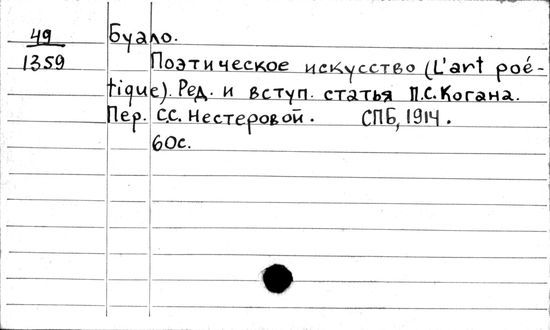 49
1359
Буало.
Поэтическое искусство (L'art poé-
tique). Ред. и вступ. статья П.С. Когана.
Пер. С.С. Нестеровой. СПБ, 1914.
60с.